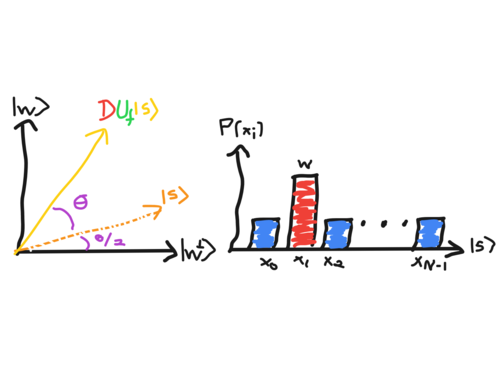 |w⟩
DU_f|s⟩
θ
|s⟩
θ/2
|w^⊥⟩
P(x_i)
w
x_0 x_1 x_2 x_{N-1}
|s⟩